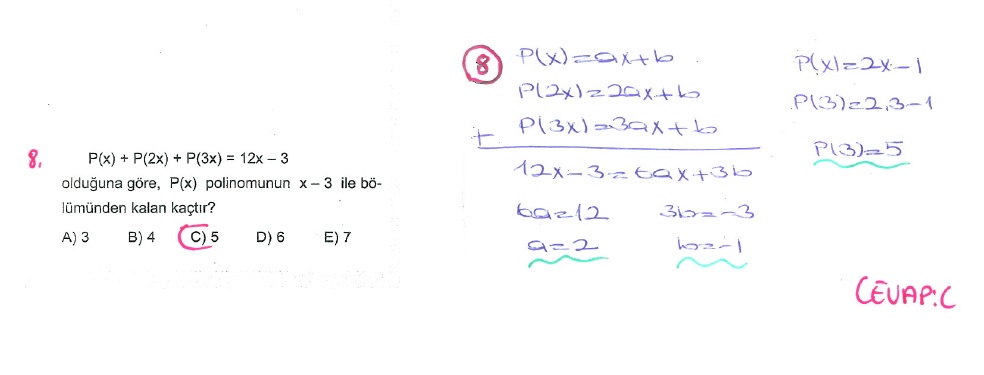 8. P(x) + P(2x) + P(3x) = 12x – 3
olduğuna göre, P(x) polinomunun x – 3 ile bö-
lümünden kalan kaçtır?
A) 3 B) 4 C) 5 D) 6 E) 7
8 P(x)=ax+b
P(2x)=2ax+b
+ P(3x)=3ax+b
12x-3=6ax+3b
6a=12 3b=-3
a=2 b=-1
P(x)=2x-1
P(3)=2.3-1
P(3)=5
CEVAP:C